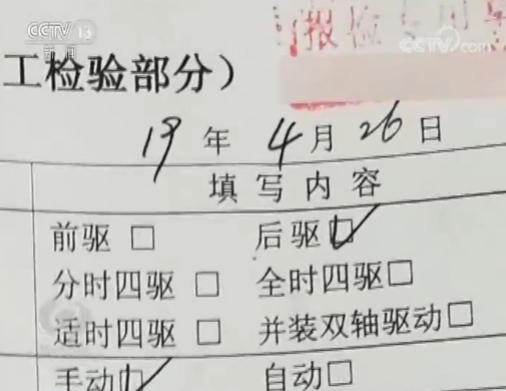 CCTV 13
新闻
报检专用章
CCTV.com
工检验部分）
19年4月26日
填写内容
前驱□ 后驱☑
分时四驱□ 全时四驱□
适时四驱□ 并装双轴驱动□
手动☑ 自动□